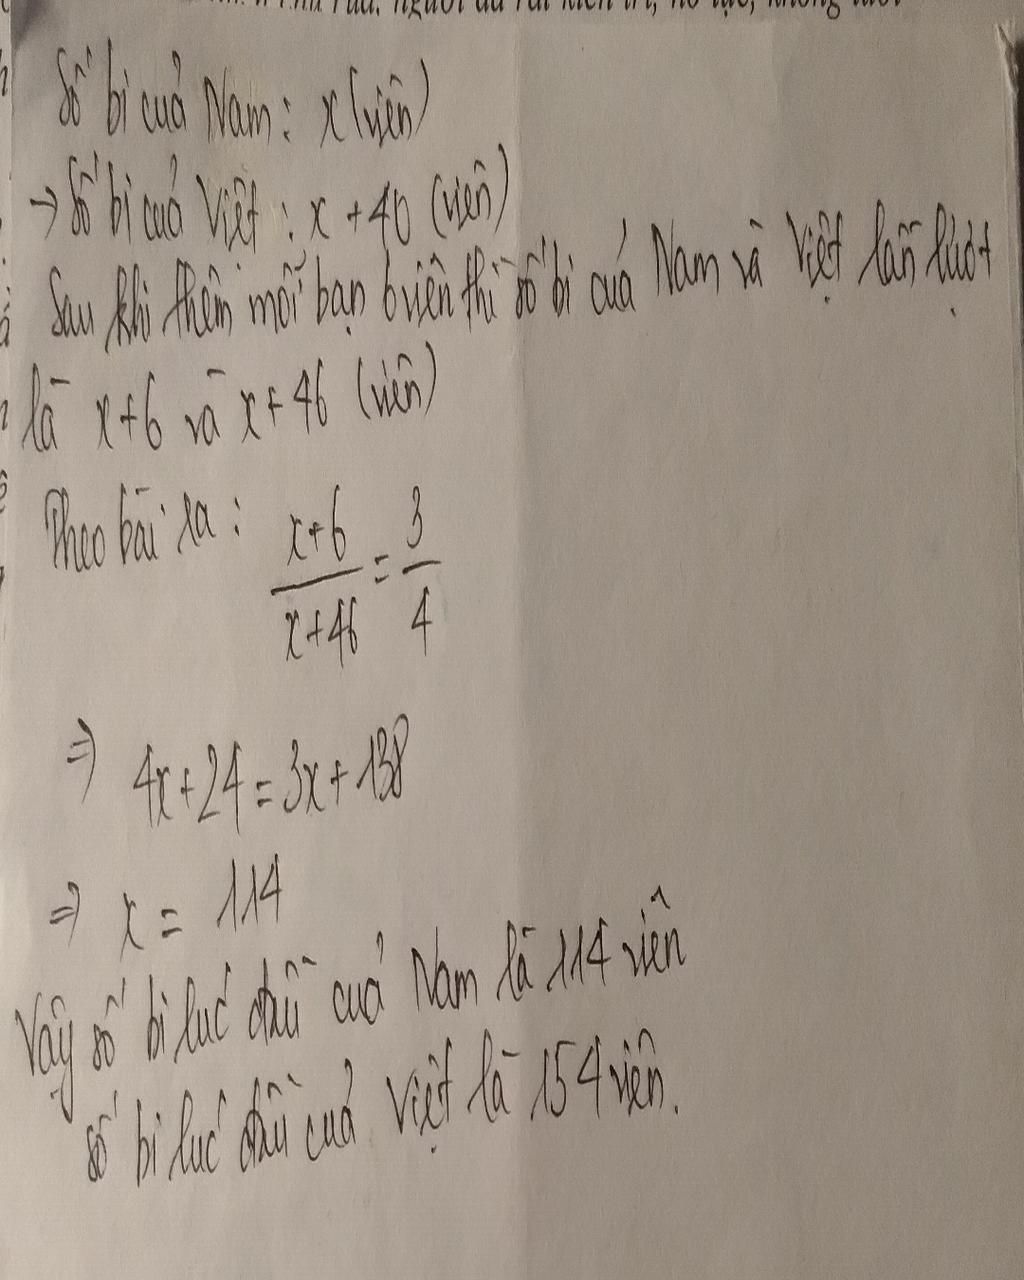 người đã rất kiên trì, nỗ lực, không
Số bi của Nam: x (viên)
→ Số bi của Việt: x + 40 (viên)
Sau khi thêm mỗi bạn 6 viên thì số bi của Nam và Việt lần lượt
là x+6 và x+46 (viên)
Theo bài ra: x+6/x+46 = 3/4
⇒ 4x+24=3x+138
⇒ x = 114
Vậy số bi lúc đầu của Nam là 114 viên
số bi lúc đầu của Việt là 154 viên.